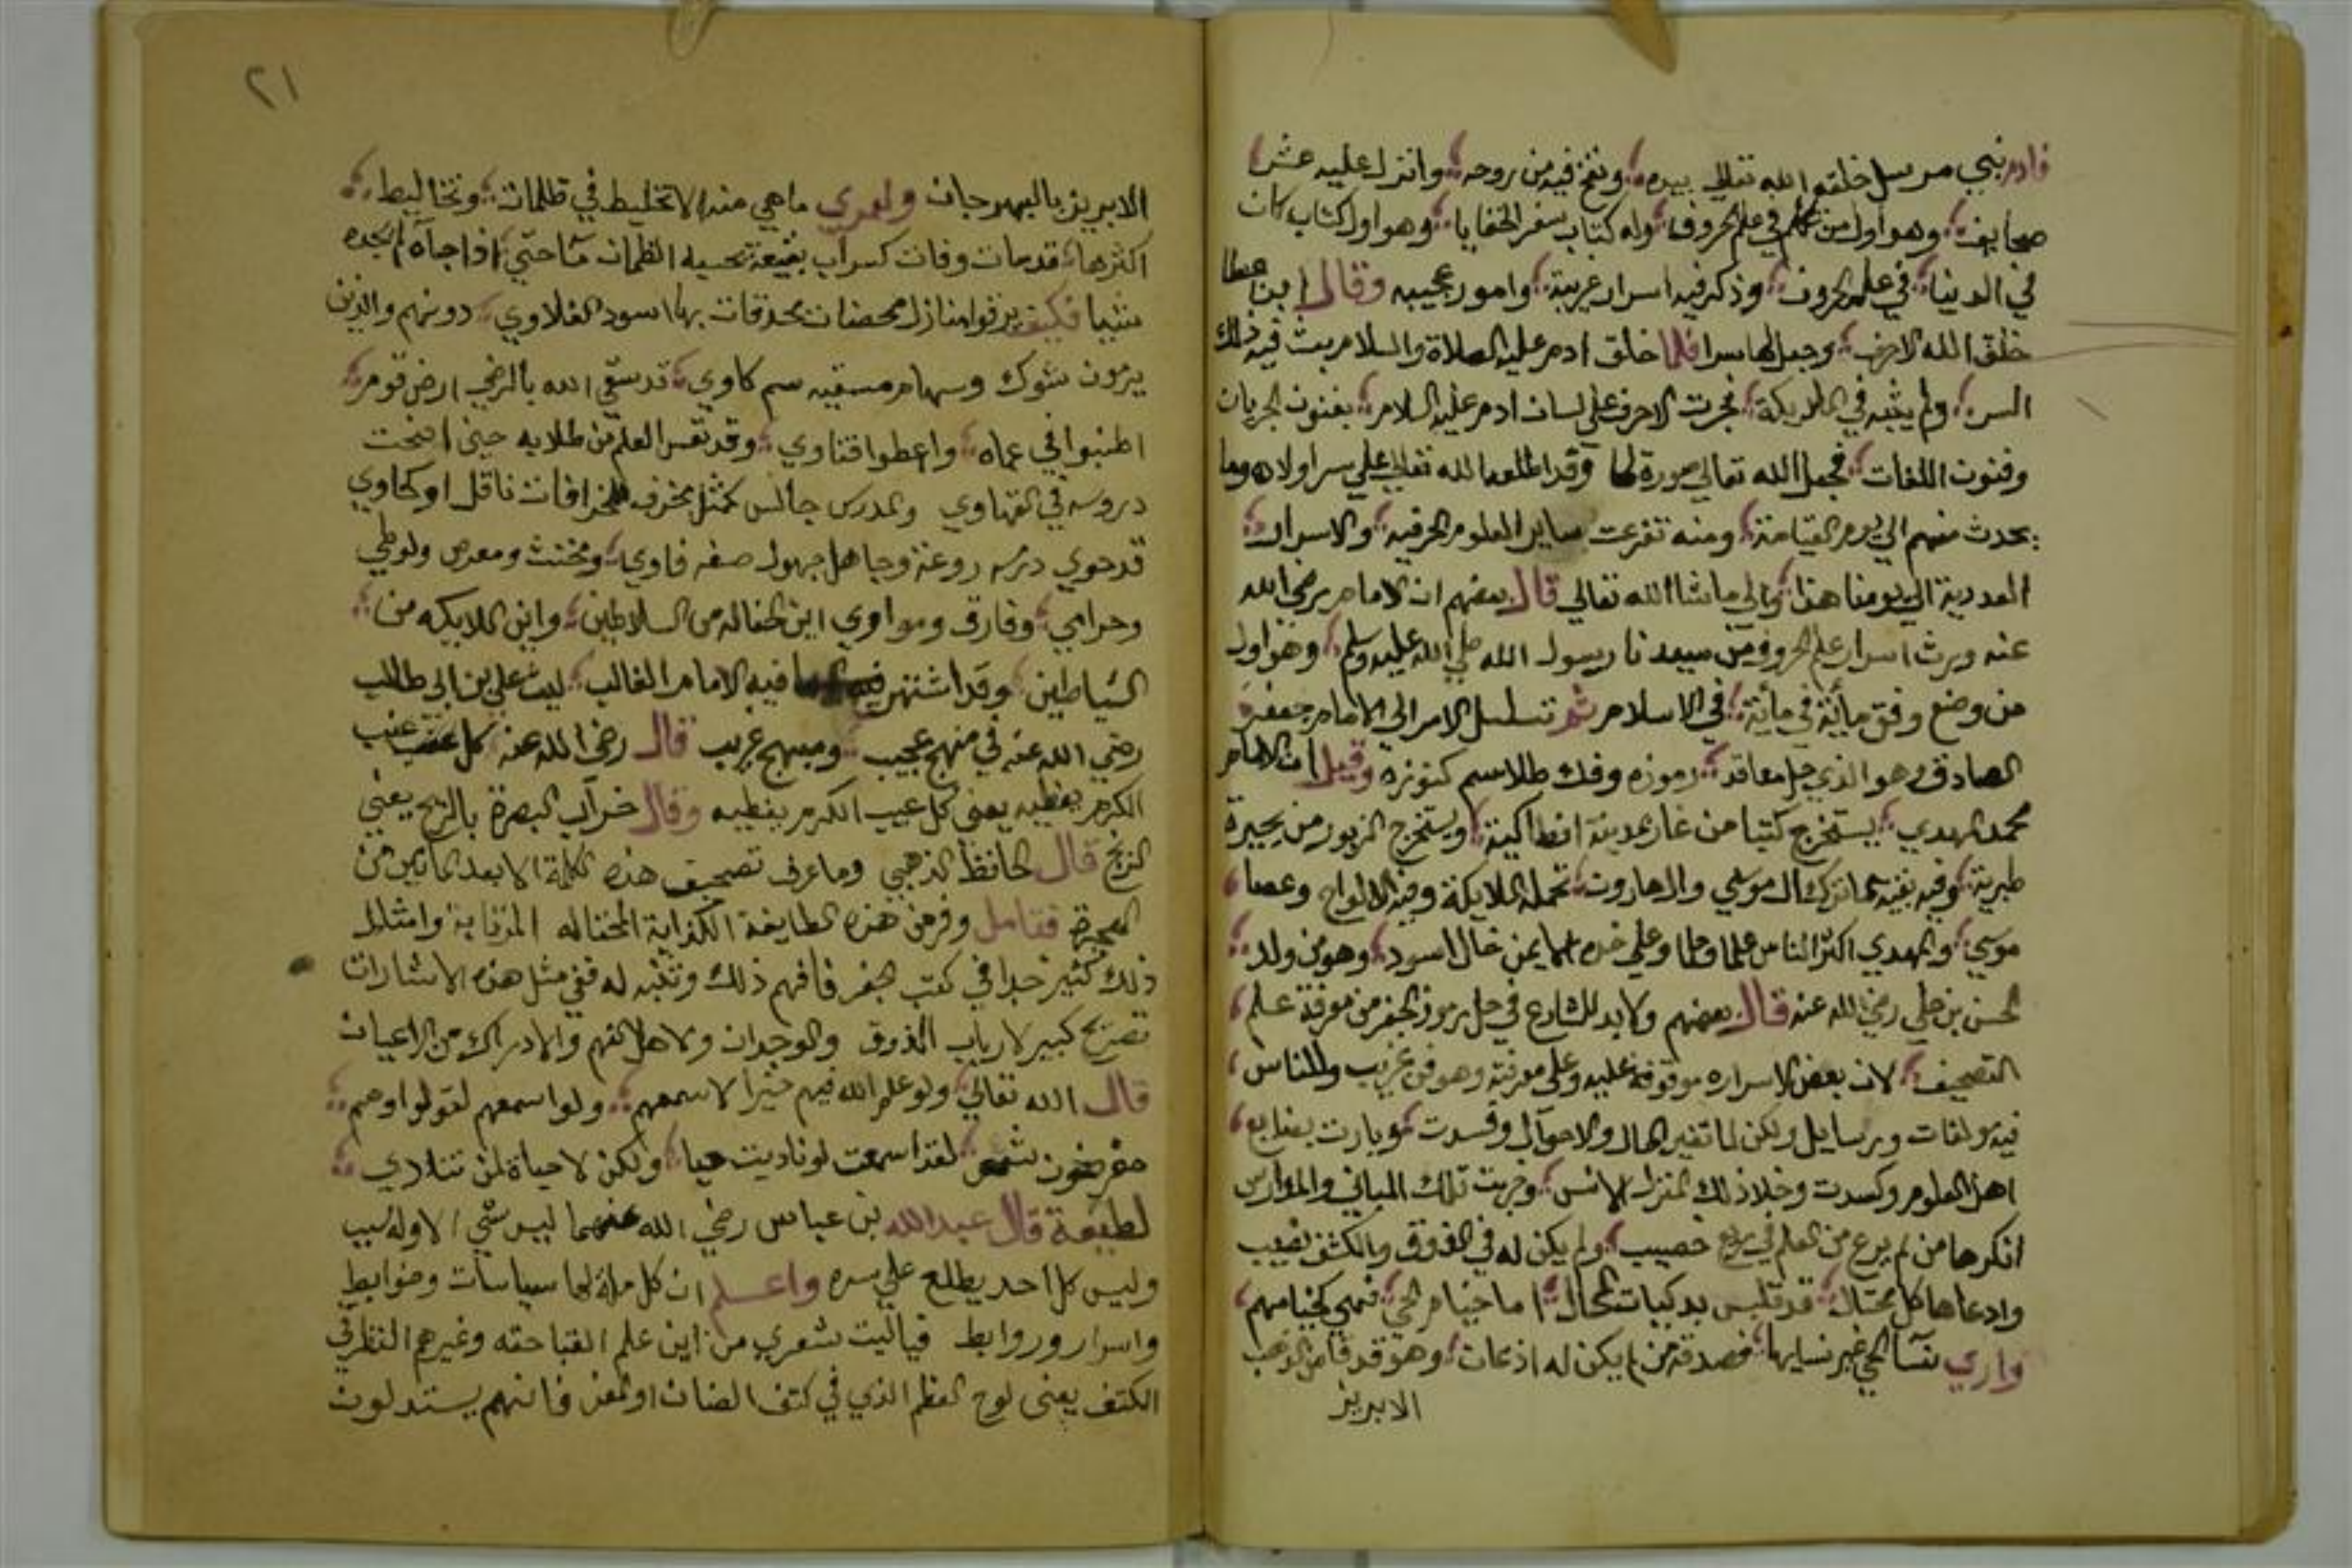 فادم نبي مرسل خلقه الله تعالي بيده ونفخ فيه من روحه وانزل عليه عشر
صحايف وهو اول من تكلم في علم الحروف وله كتاب سفر الخفايا وهو اول كتاب كان
في الدنيا في علم الحروف وذكر فيه اسرار غريبة وامور عجيبه وقال ابن عطا
خلق الله الاحرف وجعل لها سرا فلما خلق ادم عليه الصلاة والسلام بث فيه ذلك
السر ولم يبثه في الملايكة فجرت الاحرف علي لسان ادم عليه السلام بفنون الجريان
وفنون اللغات فجعل الله تعالي صورة لها وقد اطلعه الله تعالي علي سر اولاده وما
يحدث منهم الي يوم القيامة ومنه تفرعت ساير العلوم الحرفيه والاسرار
العددية الي يومنا هذا والي ماشاالله تعالي قال بعضهم ان الامام رضي الله
عنه ورث اسرار علم الحروف من سيدنا رسول الله صلي الله عليه وسلم وهو اول
من وضع وفق مائة في مائة في الاسلام ثم تسلسل الامر الي الامام جعفر
الصادق وهو الذي حل معاقد رموزه وفك طلاسم كنوزه وقيل ان الامام
محمد المهدي يستخرج كتبا من غار بمدينة انطاكية ويستخرج الزبور من بحيرة
طبرية وفيه بقية مما ترك ال موسي وال هارون تحمله الملايكة وفيه الالواح وعصا
موسي والمهدي اكثر الناس علما وحلما وعلي خده الايمن خال اسود وهو من ولد
الحسن بن علي رضي الله عنه قال بعضهم ولابد للشارع في حل رموز الجفر من معرفة علم
التصحيف لان بعض الاسراره موقوفة عليه وعلي معرفته وهو فن غريب وللناس
فيه مولفات ورسايل ولكن لما تغير الحال والاحوال وفسدت وبارت بضايع
اهل العلوم وكسدت وخلا ذلك المنزل الانس وخربت تلك المباني والمدارس
انكرها من لم يرع من العلم في ربع خصيب ولم يكن له في الذوق والكشف نصيب
وادعاها كل محتال قد تلبس بدكيات المحال اما خيام الحي فهي كخيامهم
واري نسآ الحي غير نسايها فصدقه من لم يكن له اذعان وهو قد قاس الذهب
الابريز
٢١
الابريز بالبهرجان ولعمري ماهي منه الا تخليط في ظلمات وتخاليط
اكثرها قد مات وفات كسراب بقيعة يحسبه الظمان مآ حتي اذا جآه لم يجده
شيا فكيف يرقوا منازل محصنات محدقات بها اسود الفلاوي دونهم والذين
يرمون بشوك وسهام مسقيه سم كاوي قد سقي الله بالرضي ارض قوم
اطنبوا في عماه واعطوا فتاوي وقد تعس العلم من طلابه حين اضحت
دروسه في القهاوي والمدرس جالس كمثل مخرف للخرافات ناقل او كحاوي
قد حوي درسه روعنة وجاهل جهول صفه فاوي ومخنث ومعرص ولوطي
وحرامي وفارق ومواوي اين الحثاله من السلاطين واين الملايكه من
الشياطين وقد اشتهر فيه الامام الغالب ليث علي بن ابي طالب
رضي الله عنه في منهج عجيب ومبهج غريب قال رضي الله عنه كل عنب
الكرم يعطيه يعني كل عيب الكرم يغطيه وقال خراب البصرة بالريح يعني
الزنج قال الحافظ الذهبي وما عرف تصحيف هذه الكلمة الا بعد المأتين من
الهجرة فتامل وفر من هذه الطايفة الكذابة المحتاله وامثال
ذلك كثير جدا في كتب الجفر فافهم ذلك وتنبه له ففي مثل هذه الاشارات
تصريح كبير لارباب الذوق والوجدان ولاهل الفهم والادراك من الاعيان
قال الله تعالي ولو علم الله فيهم خيرا لاسمعهم ولو اسمعهم لتولوا وهم
معرضون شعر لقد اسمعت لو ناديت حيا ولكن لا حياة لمن تنادي
لطيفة قال عبدالله بن عباس رضي الله عنهما ليس شي الا وله سبب
وليس كل احد يطلع علي سره واعلم ان كل ملة لها سياسات وضوابط
واسرار وروابط فياليت شعري من اين علم القباحقه وغيرهم النظر في
الكتف يعني لوح العظم الذي في كتف الضان او المعز فانهم يستدلون